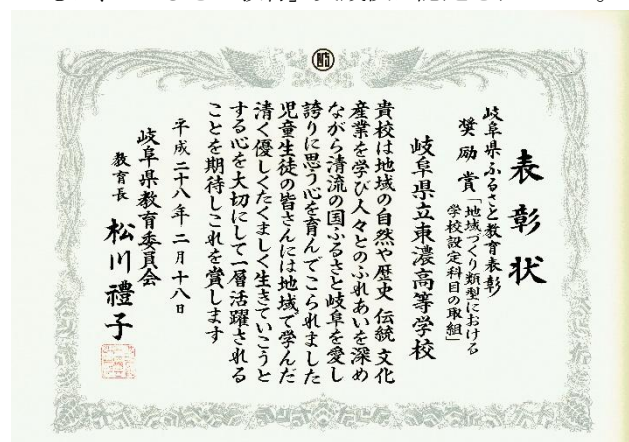 表彰状
岐阜県ふるさと教育表彰
奨励賞「地域づくり類型における
学校設定科目の取組」
岐阜県立東濃高等学校
貴校は地域の自然や歴史 伝統 文化
産業を学び人々とのふれあいを深め
ながら清流の国ふるさと岐阜を愛し
誇りに思う心を育んでこられました
児童生徒の皆さんには地域で学んだ
清く優しくたくましく生きていこうと
する心を大切にして一層活躍される
ことを期待しこれを賞します
平成二十八年二月十八日
岐阜県教育委員会
教育長 松川禮子